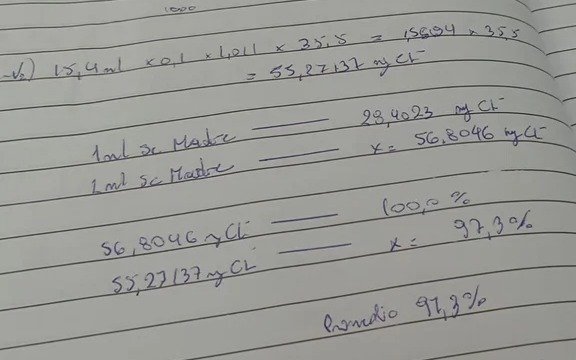 1000
15,4 ml x 0,1 x 1,011 x 35,5 = x 35,5
= 55,27137 mg Cl-
1 ml Sc Madre —— 28,4023 mg Cl-
2 ml Sc Madre —— x = 56,8046 mg Cl-
56,8046 mg Cl- —— 100,0 %
55,27137 mg Cl- —— x = 97,3%
Promedio 97,3%